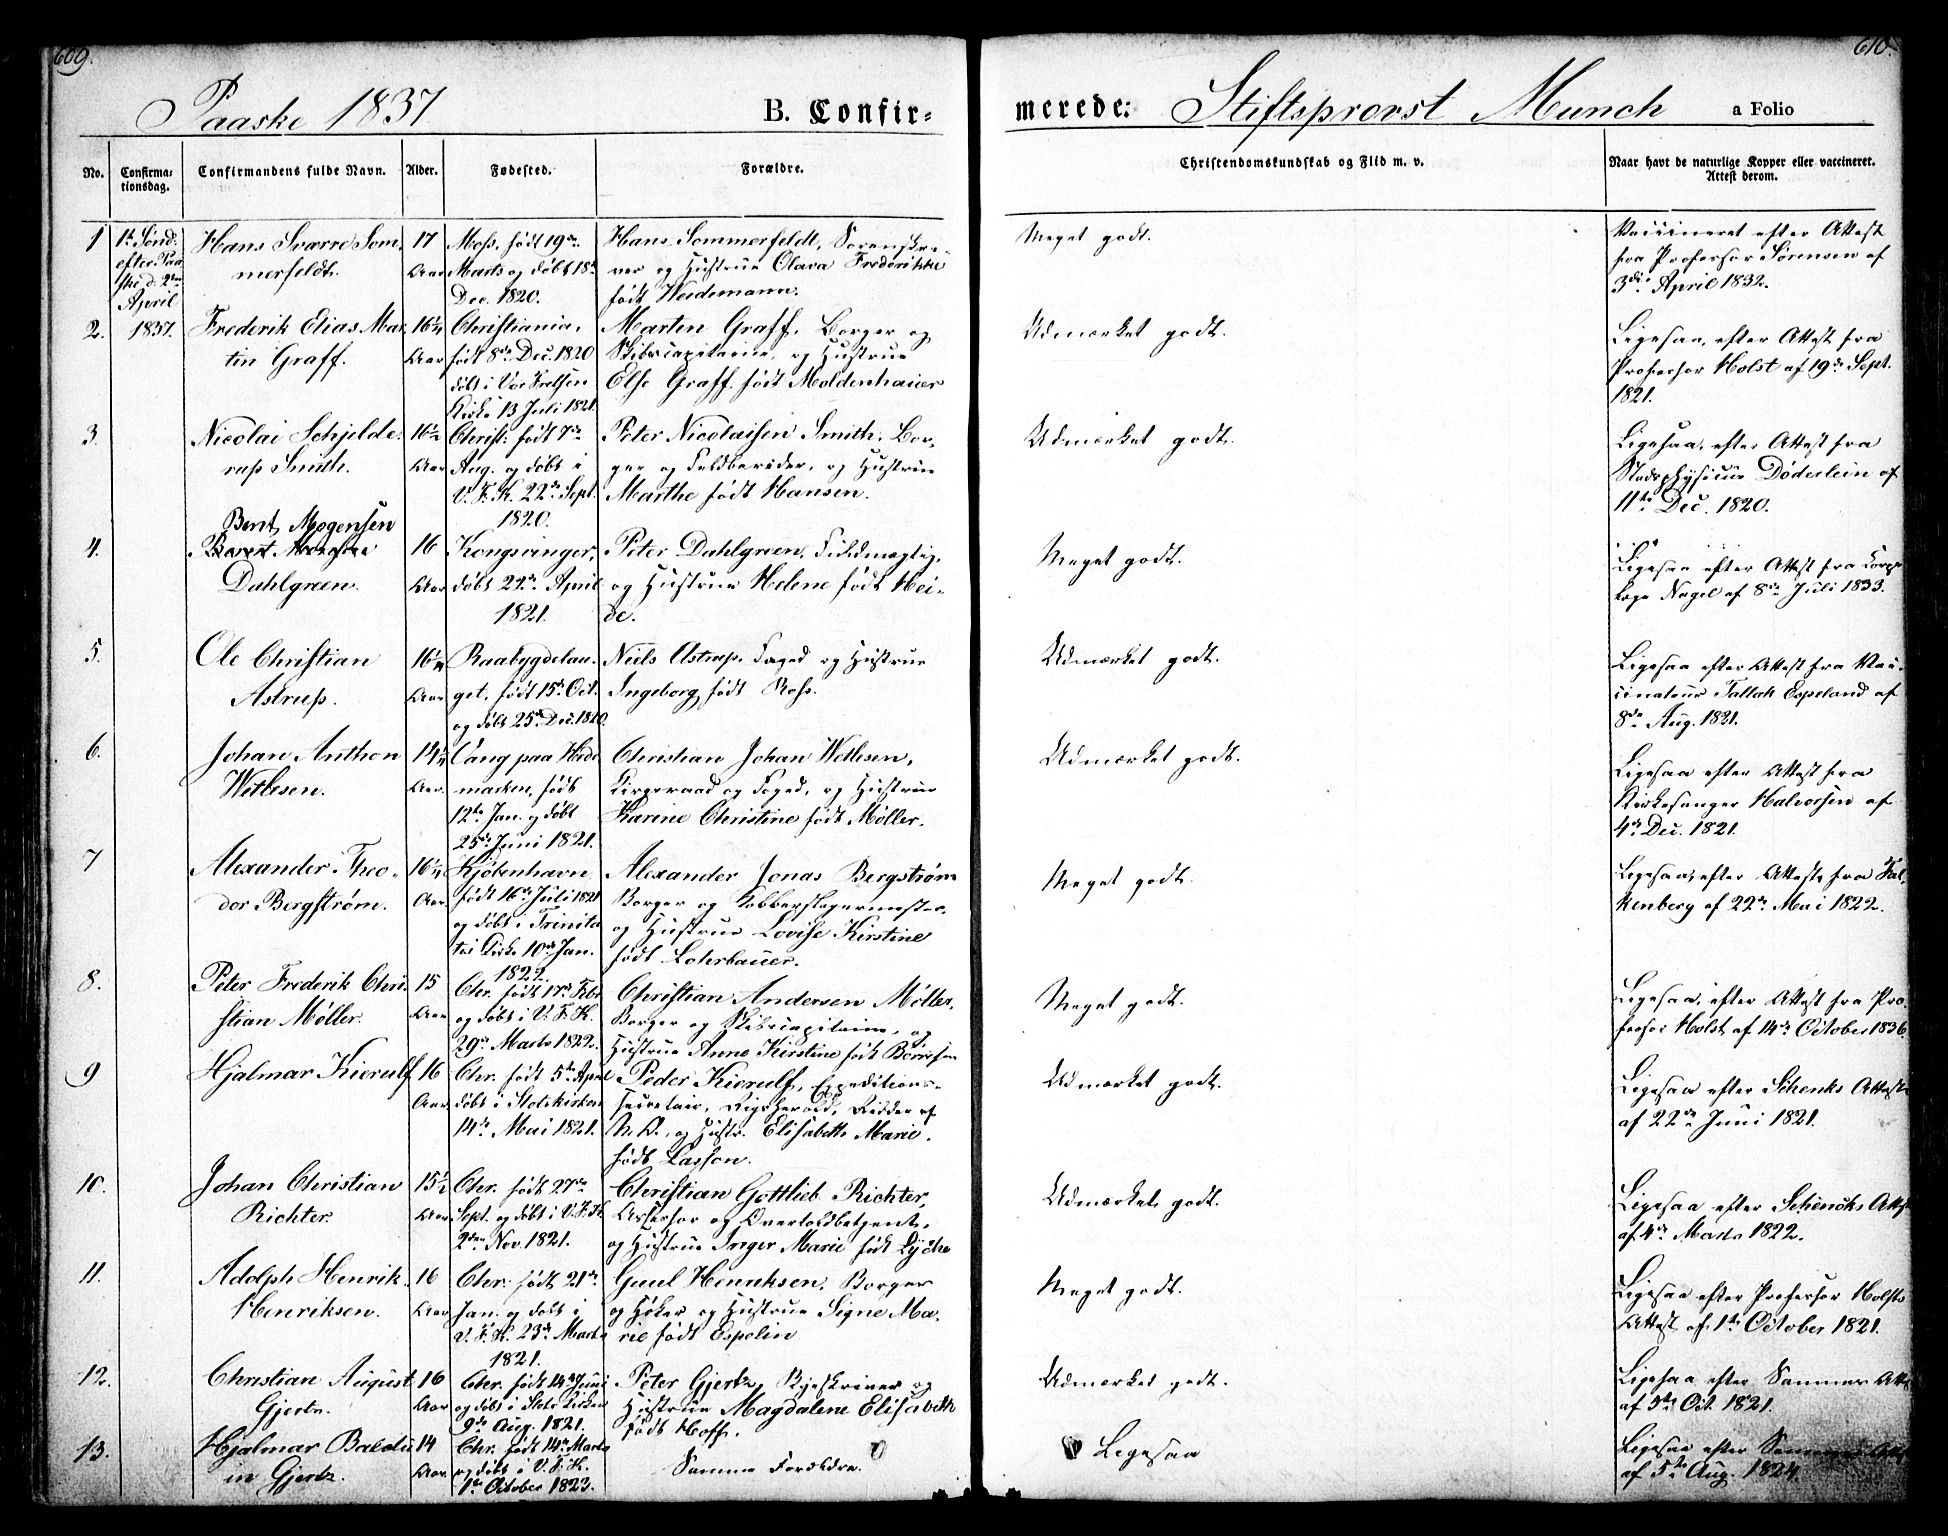 609.
610.
Paaske 1837
B. Confir-
merede: Stiftsprovst Munch a Folio
No.
Confirma-
tionsdag.
Confirmandens fulde Navn.
Alder.
Fødested.
Forældre.
Christendomskundskab og Flid m. v.
Naar havt de naturlige Kopper eller vaccineret.
Attest derom.
1
1te Sønd.
efter Paa-
ske d. 2den
April
1837.
Hans Sværre Som-
merfeldt.
17
Aar
Moss, født 19de
Marts og døbt 18de
Dec. 1820.
Hans Sommerfeldt, Sorenskri-
ver og Hustrue Olava Frederikke
født Weidemann.
Meget godt.
Vaccineret efter Attest
fra Professor Sørensen af
3die April 1832.
2.
Frederik Elias Mar-
tin Graff.
Aar
Christiania,
født 8de Dec. 1820
døbt i Vor Frelsers
Kirke 13 Juli 1821.
Marten Graff, Borger og
Skibscapitaine, og Hustrue
Else Graff født Moldenhauer
Udmærket godt.
Ligesaa, efter Attest fra
Professor Holst af 19de Sept.
1821.
3.
Nicolai Schjelde-
rup Smith.
16½
Aar
Christ: født 7de
Aug. og døbt i
V. F. K. 22de Sept.
1820.
Peter Nicolaisen Smith, Bor-
ger og Feldbereder, og Hustrue
Marthe født Hansen.
Udmærket godt.
Ligesaa, efter Attest fra
Stadsphysicus Døderlein af
11te Dec. 1820.
4.
Bent Mogensen
Dahlgreen.
16
Aar
Kongsvinger,
døbt 24de April
1821.
Peter Dahlgreen, Fuldmægtig,
og Hustrue Helene født Hei-
de.
Meget godt.
Ligesaa efter Attest fra Corps
læge Nagel af 8de Juli 1833.
5.
Ole Christian
Astrup.
Aar
Raabygdelau-
get, født 15de Oct.
og døbt 25de Dec. 1820.
Niels Astrup, Foged og Hustrue
Ingeborg født Ross.
Udmærket godt.
Ligesaa efter Attest fra Vac-
cinateur Tallak Espeland af
8de Aug. 1821.
6.
Johan Anthon
Wetlesen.
Aar.
Vang paa Hede-
marken, født
12te Jan. og døbt
25de Juni 1821.
Christian Johan Wetlesen,
Krigsraad og Foged, og Hustrue
Karine Christine født Møller.
Udmærket godt.
Ligesaa efter Attest fra
Kirkesanger Halvorsen af
4de Dec. 1821.
7
Alexander Theo-
dor Bergstrøm.
Aar.
Kjøbenhavn
født 16de Juli 1821
og døbt i Trinita-
tis Kirke 10de Jan.
1822.
Alexander Jonas Bergstrøm
Borger og Kobberslagermester,
og Hustrue Lovise Kirstine
født Lohrbauer.
Meget godt.
Ligesaa, efter Attest fra Fal-
kenberg af 22de Mai 1822.
8.
Peter Frederik Chri-
stian Møller.
15
Aar
Chr. født 17de Febr.
og døbt i V. F. K.
29de Marts 1822.
Christian Andersen Møller,
Borger og Skibscapitaine, og
Hustrue Anne Kirstine født Børresen
Meget godt.
Ligesaa, efter Attest fra Pro-
fessor Holst af 14de October 1836.
9
Hjalmar Kierulf
16
Aar.
Chr. født 5te April
døbt i Slotskirken
14de Mai 1821.
Peder Kierulf, Expeditions-
secretair, Rigsherold, Ridder af
N. O., og Hustr. Elisabeth Marie,
født Lasson.
Udmærket godt.
Ligesaa efter Schenks Attest
af 22de Juni 1821.
10.
Johan Christian
Richter.
15½
Aar
Chr. født 27de
Sept. og døbt i V. F. K.
2den Nov. 1821.
Christian Gottlieb Richter,
Assessor og Overtoldbetjent,
og Hustrue Inger Marie født Lyche
Udmærket godt.
Ligesaa efter Schencks Attest
af 4de Marts 1822.
11.
Adolph Henrik
Henriksen.
16
Aar
Chr. født 21de
Jan. og døbt i
V. F. K. 23de Marts
1821.
Guul Henriksen, Borger
og Høker og Hustrue Signe Ma-
rie født Espelin
Meget godt.
Ligesaa efter Professor Holsts
Attest af 1ste October 1821.
12.
Christian August
Gjertz.
16
Aar
Chr. født 14de Juni
og døbt i Slots Kirken
9de Aug. 1821.
Peter Gjertz, Byeskriver og
Hustrue Magdalene Elisabeth
født Hoff.
Udmærket godt.
Ligesaa efter Sammes Attest
af 5te Oct. 1821.
13.
Hjalmar Baldu-
in Gjertz.
14
Aar.
Chr. født 14de Marts
og døbt i V. F. K.
1ste October 1823.
Samme Forældre.
Ligesaa
Ligesaa efter Sammes Attest
af 5te Aug. 1824.